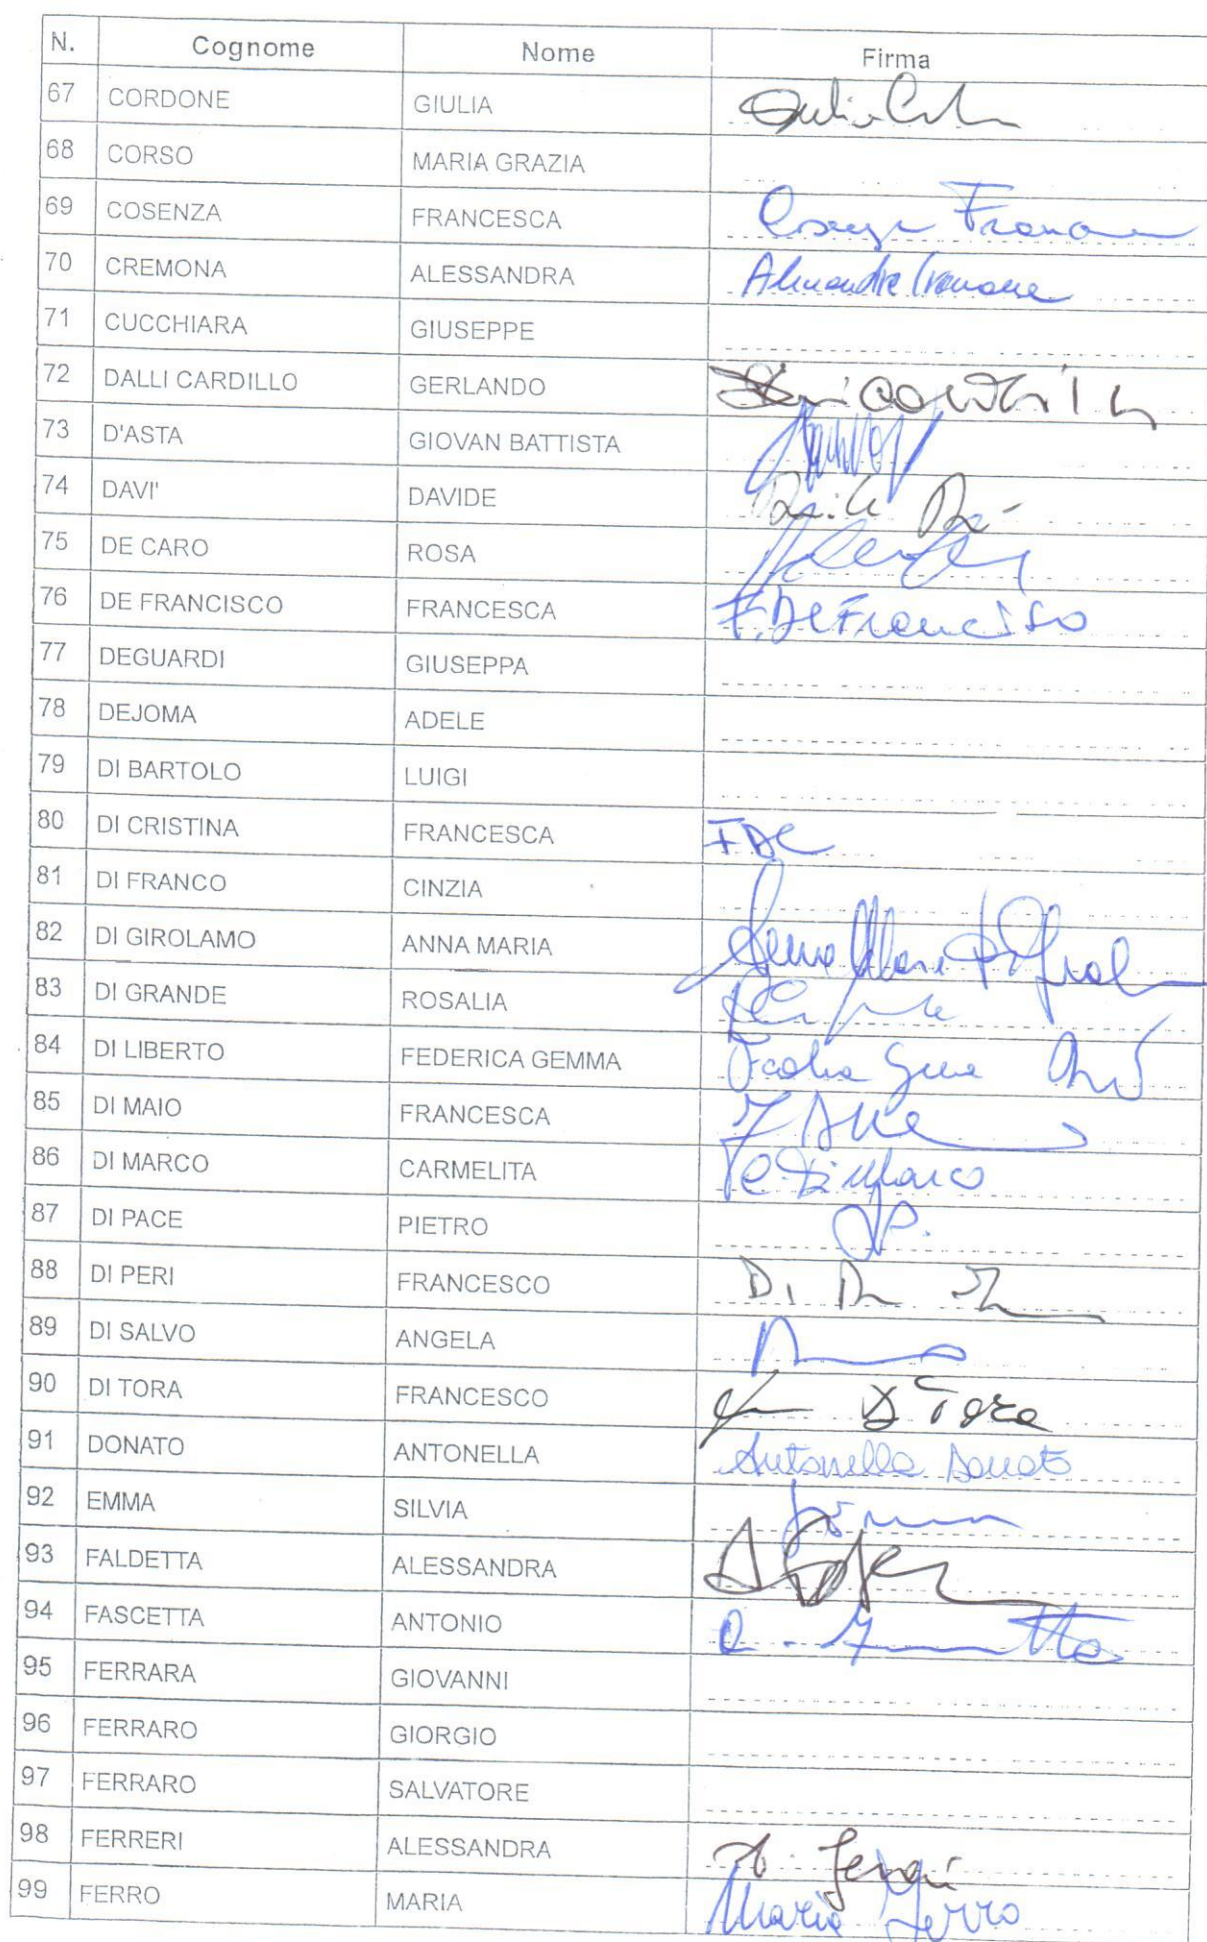 N. Cognome Nome Firma
67 CORDONE GIULIA Giulia
68 CORSO MARIA GRAZIA
69 COSENZA FRANCESCA
70 CREMONA ALESSANDRA Alessandra
71 CUCCHIARA GIUSEPPE
72 DALLI CARDILLO GERLANDO
73 D'ASTA GIOVAN BATTISTA
74 DAVI' DAVIDE
75 DE CARO ROSA
76 DE FRANCISCO FRANCESCA F. De Francisco
77 DEGUARDI GIUSEPPA
78 DEJOMA ADELE
79 DI BARTOLO LUIGI
80 DI CRISTINA FRANCESCA FDC
81 DI FRANCO CINZIA
82 DI GIROLAMO ANNA MARIA Anna Maria
83 DI GRANDE ROSALIA
84 DI LIBERTO FEDERICA GEMMA
85 DI MAIO FRANCESCA
86 DI MARCO CARMELITA Di Marco
87 DI PACE PIETRO
88 DI PERI FRANCESCO Di
89 DI SALVO ANGELA
90 DI TORA FRANCESCO Di Tora
91 DONATO ANTONELLA Antonella Donato
92 EMMA SILVIA
93 FALDETTA ALESSANDRA
94 FASCETTA ANTONIO
95 FERRARA GIOVANNI
96 FERRARO GIORGIO
97 FERRARO SALVATORE
98 FERRERI ALESSANDRA A. Ferreri
99 FERRO MARIA Maria Ferro